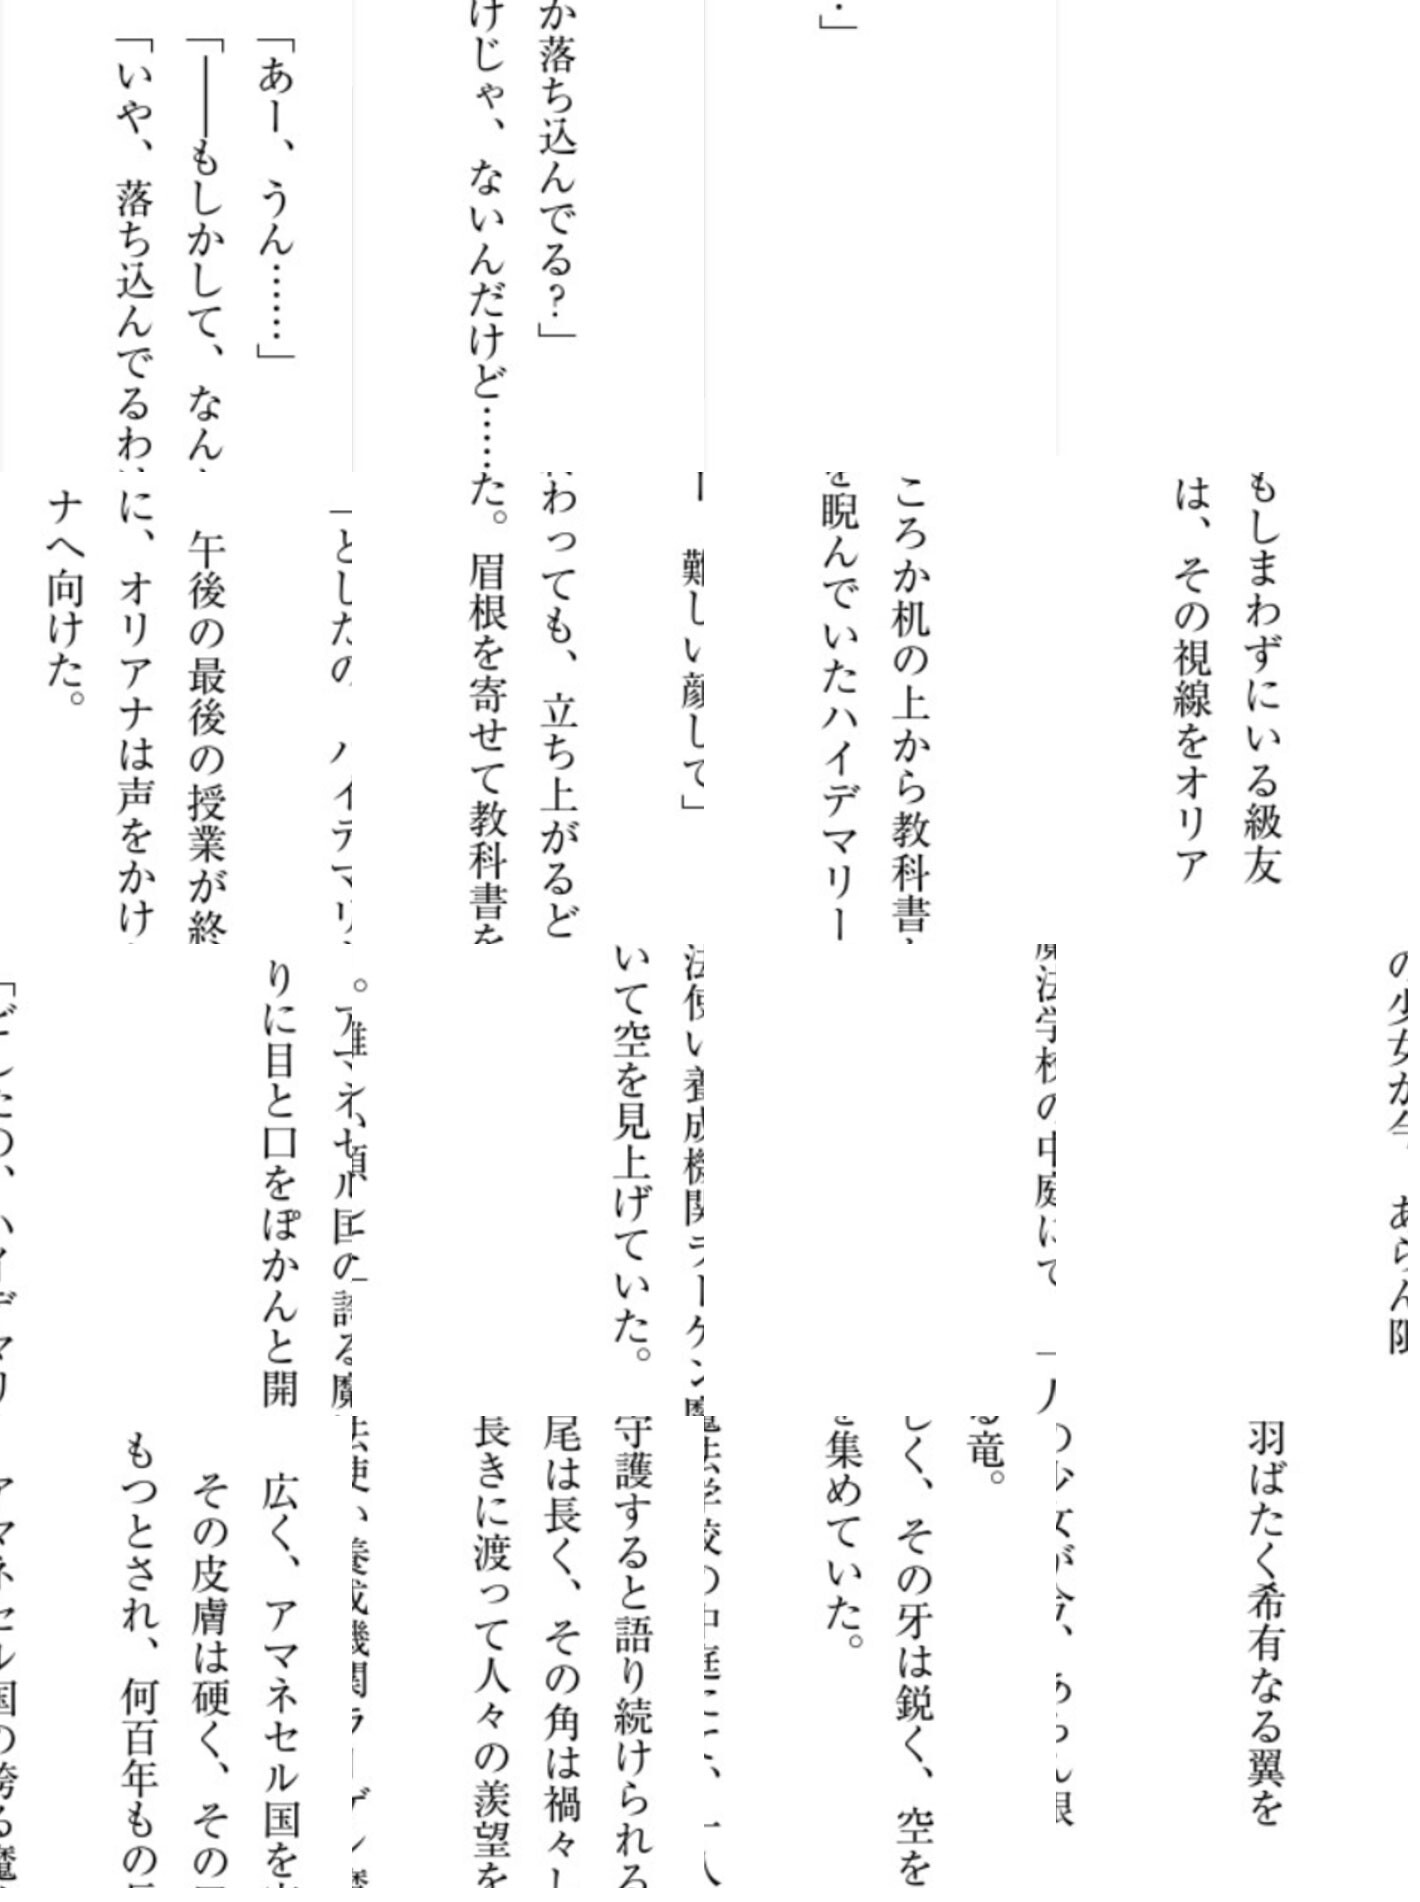 「あー、うん……」
「――もしかして、なんか落ち込んでる?」
「いや、落ち込んでるわけじゃ、ないんだけど……」
「どしたの、ハイデマリー、難しい顔して」
午後の最後の授業が終わっても、立ち上がるどころか机の上から教科書もしまわずにいる級友
に、オリアナは声をかけた。眉根を寄せて教科書を睨んでいたハイデマリーは、その視線をオリア
ナへ向けた。
アマネセル国の誇る魔法使い養成機関ラーゲン魔法学校の中庭にて、一人の少女が今、あらん限
りに目と口をぽかんと開いて空を見上げていた。
広く、アマネセル国を守護すると語り続けられる竜。
その皮膚は硬く、その尾は長く、その角は禍々しく、その牙は鋭く、空を羽ばたく希有なる翼を
もつとされ、何百年もの長きに渡って人々の羨望を集めていた。